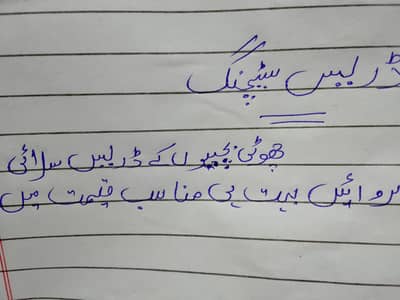 ڈریس سٹچنگ
چھوٹی بچیوں کے ڈریس سلائی
کروائیں بہت ہی مناسب قیمت میں